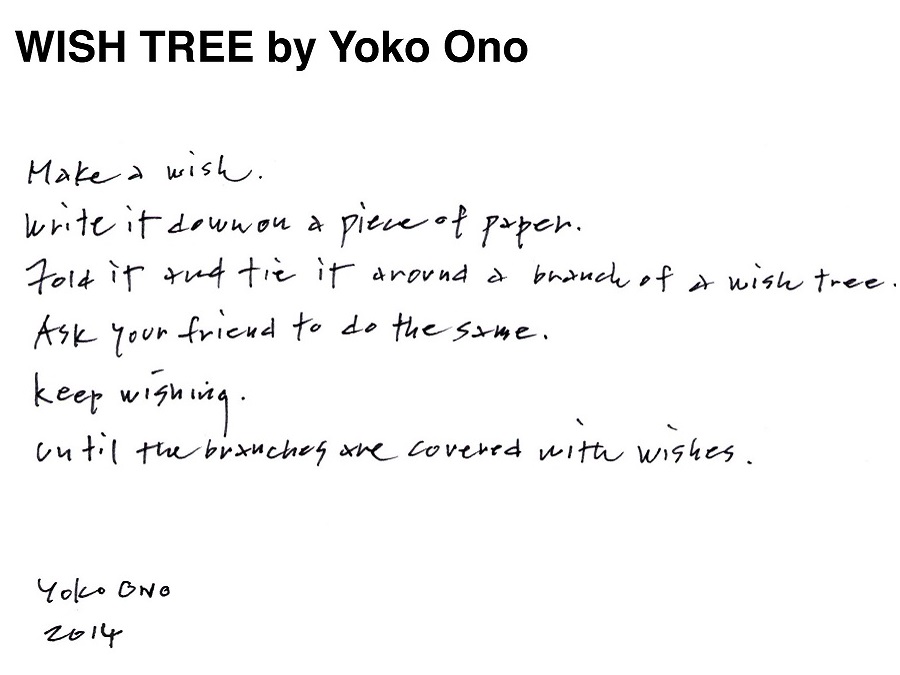 WISH TREE by Yoko Ono
Make a wish.
Write it down on a piece of paper.
Fold it and tie it around a branch of a wish tree.
Ask your friend to do the same.
Keep wishing.
Until the branches are covered with wishes.
Yoko Ono
2014